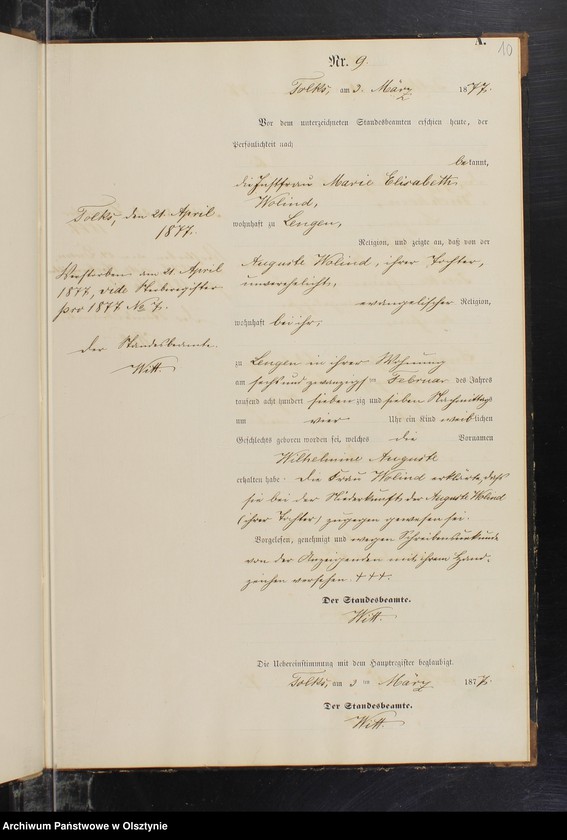 A.
10
Nr. 9.
Tolks, am 3. März 1877.
Vor dem unterzeichneten Standesbeamten erschien heute, der
Persönlichkeit nach
bekannt,
die Instfrau Marie Elisabeth
Wolind,
wohnhaft zu Lengen,
Religion, und zeigte an, daß von der
Auguste Wolind, ihrer Tochter,
unverehelicht,
evangelischer Religion,
wohnhaft bei ihr,
zu Lengen in ihrer Wohnung
am sechsundzwanzigsten Februar des Jahres
tausend acht hundert siebenzig und sieben Nachmittags
um vier Uhr ein Kind weiblichen
Geschlechts geboren worden sei, welches die Vornamen
Wilhelmine Auguste
erhalten habe. Die Frau Wolind erklärte, daß
sie bei der Niederkunft der Auguste Wolind
(ihrer Tochter) zugegen gewesen sei.
Vorgelesen, genehmigt und wegen Schreibensunkunde
von der Anzeigenden mit ihrem Hand-
zeichen versehen. + + +.
Der Standesbeamte.
Witt.
Die Uebereinstimmung mit dem Hauptregister beglaubigt.
Tolks, am 3ten März 1877.
Der Standesbeamte.
Witt.
Tolks, den 21. April
1877.
Verstorben am 21 April
1877, vide Sterberegister
pro 1877 No 7.
Der Standesbeamte.
Witt.
Archiwum Państwowe w Olsztynie